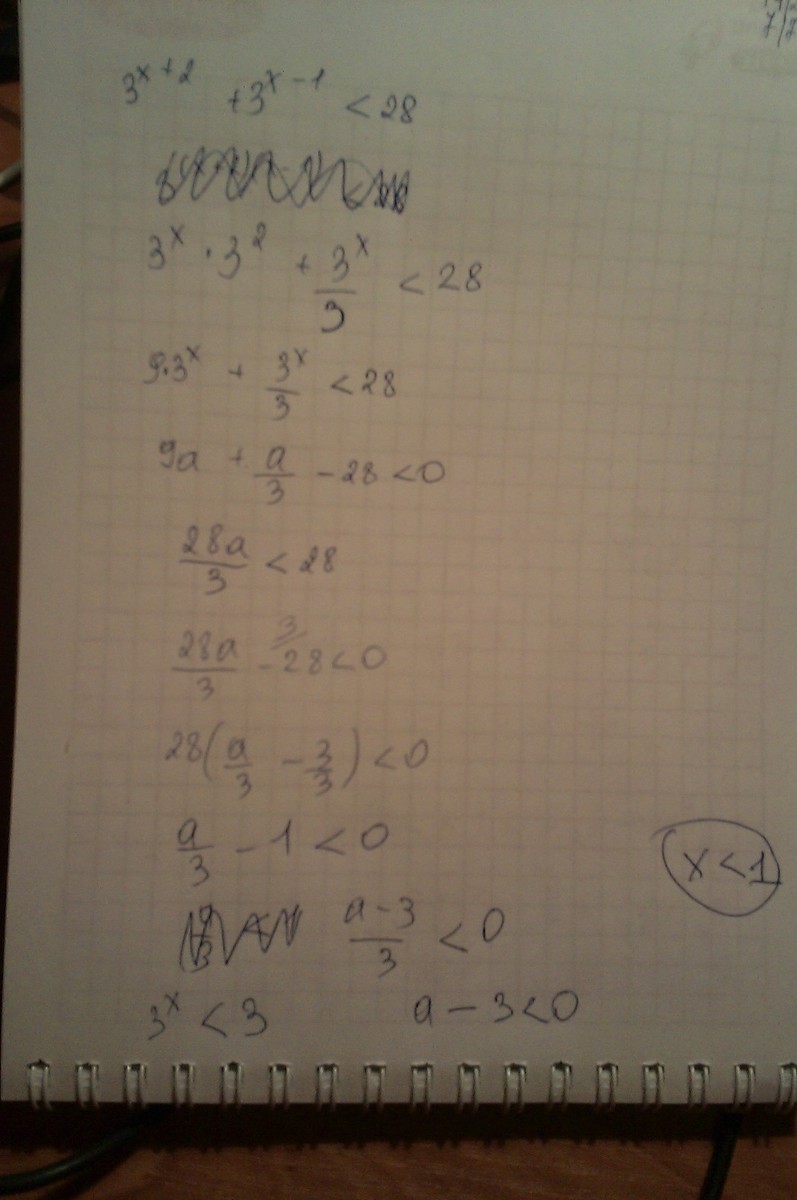 3^(x+2) + 3^(x-1) < 28
3^x · 3^2 + 3^x/3 < 28
9·3^x + 3^x/3 < 28
9a + a/3 - 28 < 0
28a/3 < 28
28a/3 - 28^(3/) < 0
28(a/3 - 3/3) < 0
a/3 - 1 < 0
x < 1
(a-3)/3 < 0
3^x < 3 a - 3 < 0